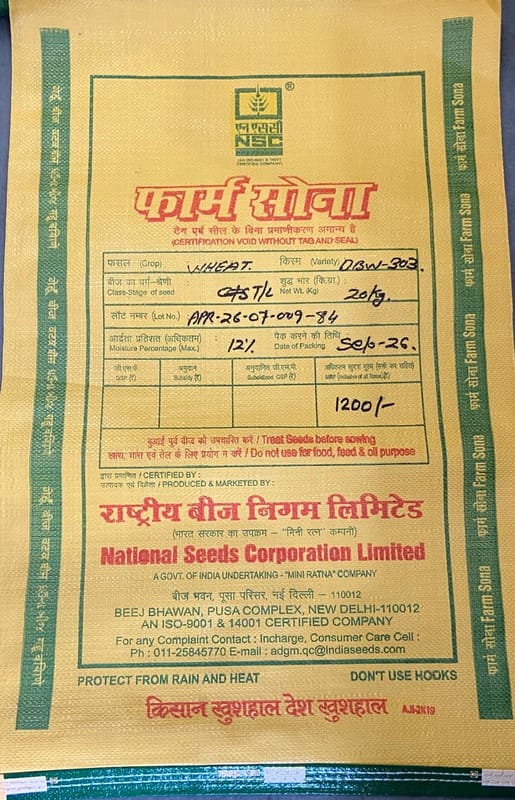 ®
एन एस सी
NSC
(AN ISO-9001 & 14001
CERTIFIED COMPANY)
फार्म सोना
टैग एवं सील के बिना प्रमाणीकरण अमान्य है
(CERTIFICATION VOID WITHOUT TAG AND SEAL)
फसल (Crop) : WHEAT. किस्म (Variety) DBW-303.
बीज का वर्ग-श्रेणी : शुद्ध भार (कि.ग्रा.) :
Class-Stage of seed T/L Net Wt. (Kg) 20kg.
लॉट नम्बर (Lot No.) APR-26-07-009-84
आर्द्रता प्रतिशत (अधिकतम) : पैक करने की तिथि
Moisture Percentage (Max.) 12% Date of Packing Sep-26.
जी.एस.पी अनुदान अनुदानित जी.एस.पी. अधिकतम खुदरा मूल्य (सभी कर सहित)
GSP (₹) Subsidy (₹) Subsidized GSP (₹) MRP (Inclusive of all Taxes)(₹)
1200/-
बुआई पूर्व बीज को उपचारित करें / Treat Seeds before sowing
खाद्य, चारा एवं तेल के लिए प्रयोग न करें / Do not use for food, feed & oil purpose
द्वारा प्रमाणित / CERTIFIED BY :
उत्पादक एवं विक्रेता / PRODUCED & MARKETED BY :
राष्ट्रीय बीज निगम लिमिटेड
(भारत सरकार का उपक्रम – "मिनी रत्न" कम्पनी)
National Seeds Corporation Limited
A GOVT. OF INDIA UNDERTAKING - "MINI RATNA" COMPANY
बीज भवन, पूसा परिसर, नई दिल्ली – 110012
BEEJ BHAWAN, PUSA COMPLEX, NEW DELHI-110012
AN ISO-9001 & 14001 CERTIFIED COMPANY
For any Complaint Contact : Incharge, Consumer Care Cell :
Ph : 011-25845770 E-mail : adgm.qc@indiaseeds.com
PROTECT FROM RAIN AND HEAT DON'T USE HOOKS
किसान खुशहाल देश खुशहाल AJI-2K19
फार्म सोना Farm Sona
फार्म सोना Farm Sona
फार्म सोना Farm Sona
फार्म सोना Farm Sona
फार्म सोना Farm Sona